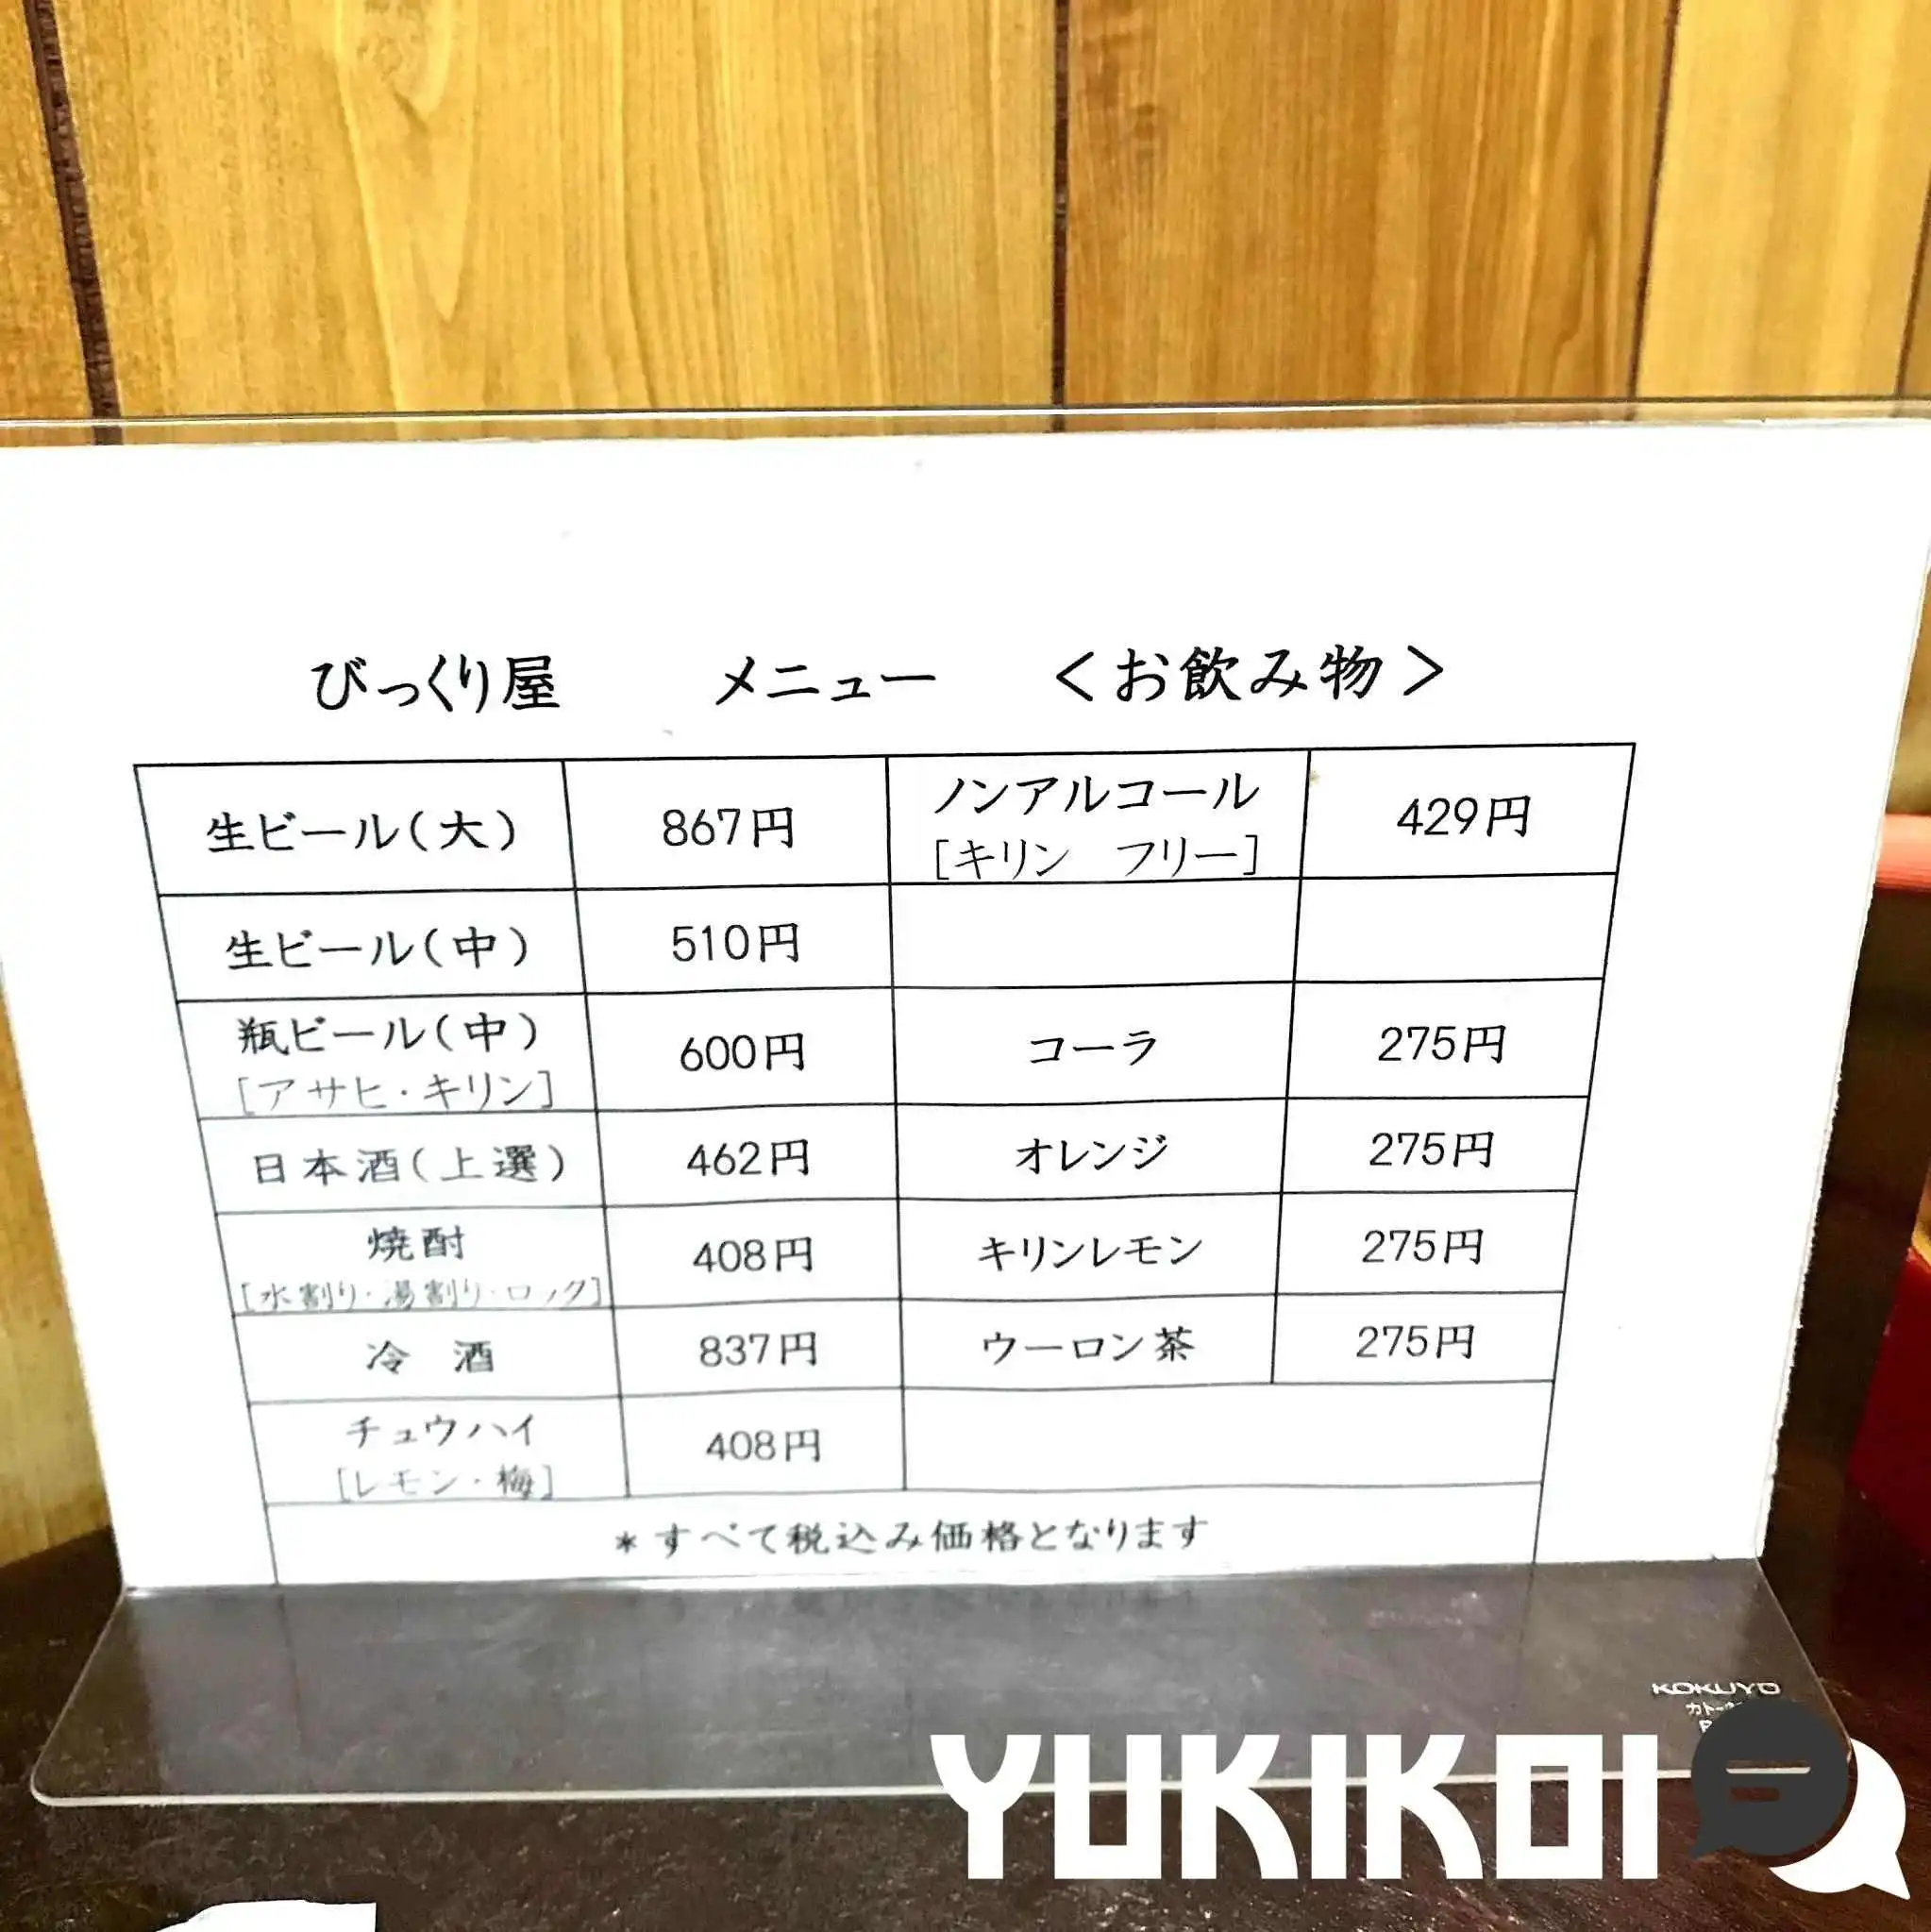 びっくり屋 メニュー <お飲み物>
生ビール(大) 867円 ノンアルコール 429円
[キリン フリー]
生ビール(中) 510円
瓶ビール(中) 600円 コーラ 275円
[アサヒ・キリン]
日本酒(上選) 462円 オレンジ 275円
焼酎 408円 キリンレモン 275円
[水割り・湯割り・ロック]
冷 酒 837円 ウーロン茶 275円
チュウハイ 408円
[レモン・梅]
*すべて税込み価格となります
KOKUYO
YUKIKOI